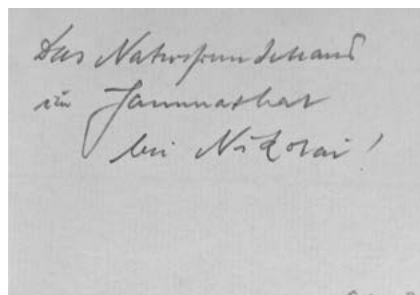 Das Naturfreundehaus
im Jammertal
bei Nikolai!